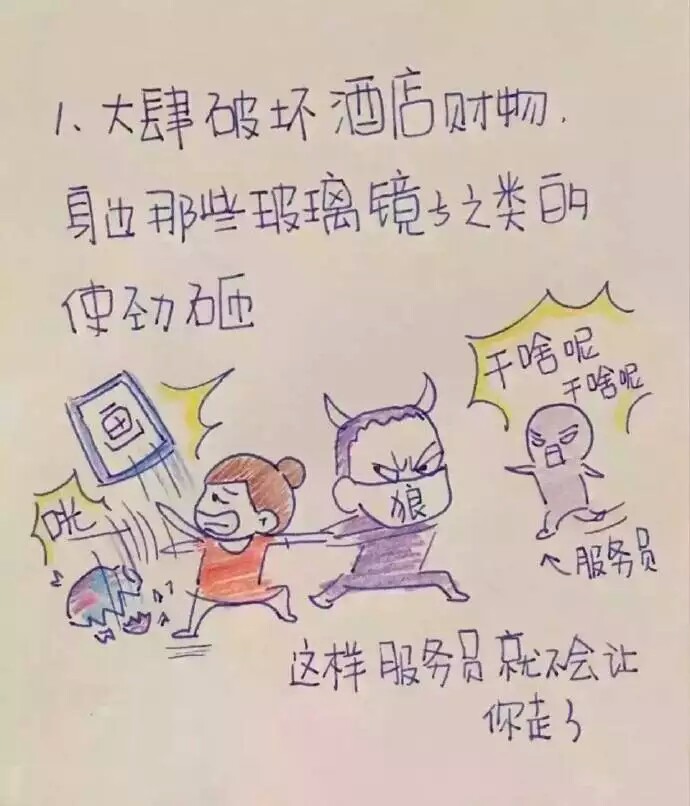 1、大肆破坏酒店财物.
身边那些玻璃镜子之类的
使劲砸
干啥呢
干啥呢
画
咣
狼
服务员
这样服务员就不会让
你走了